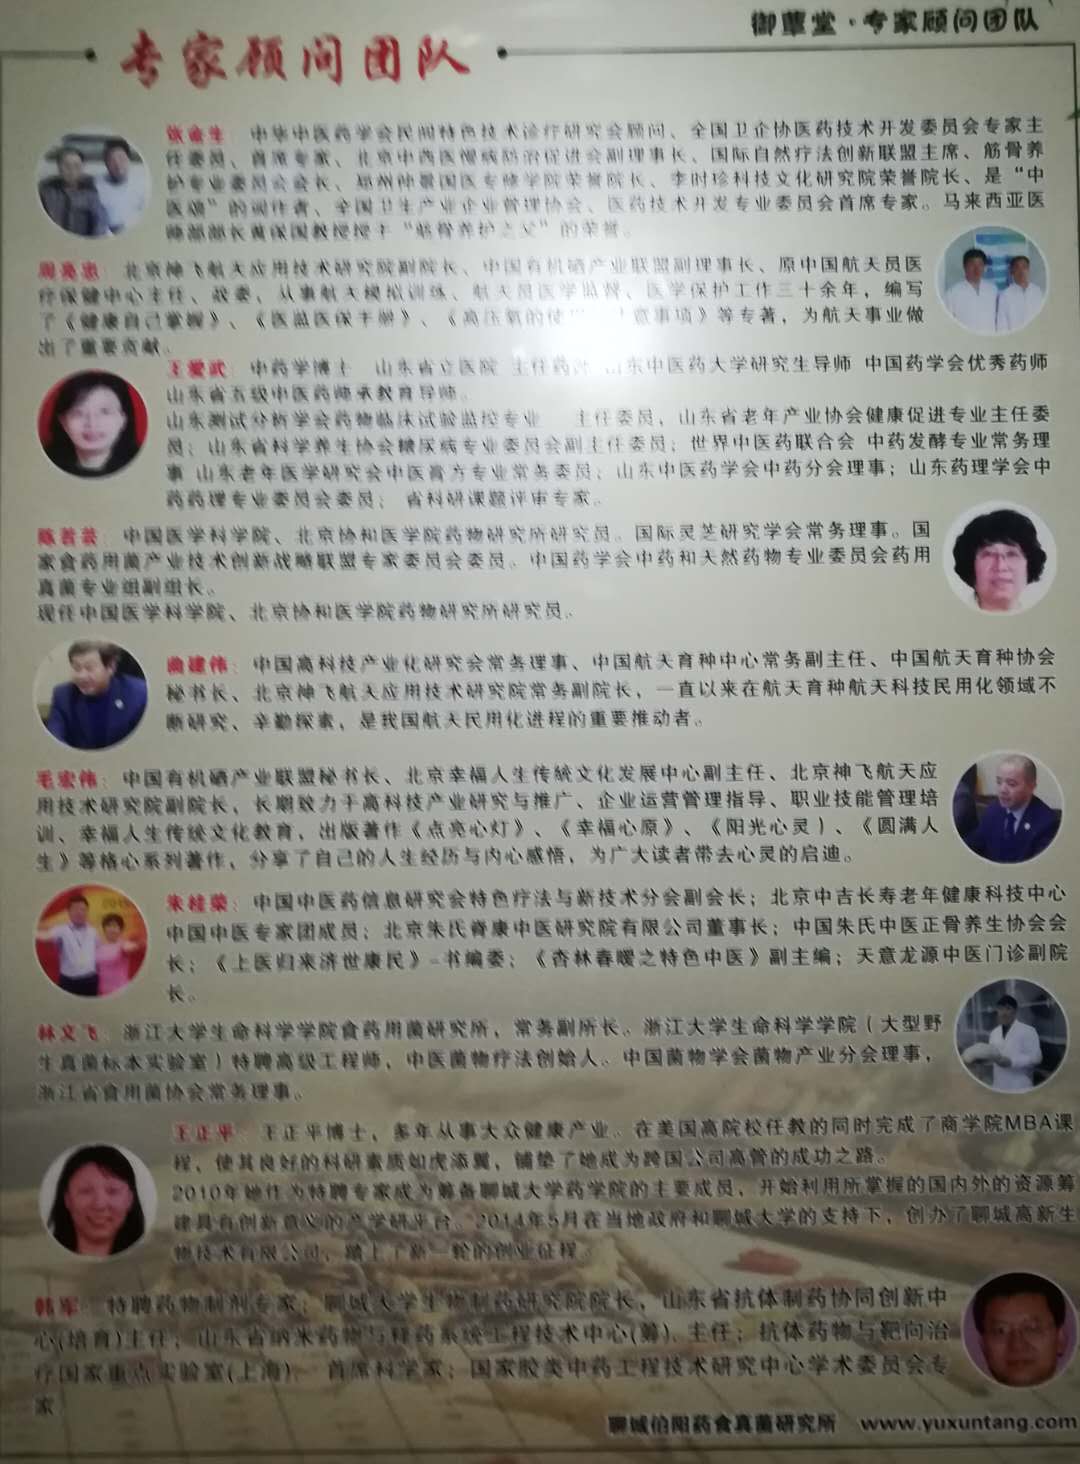 御蕈堂·专家顾问团队
专家顾问团队
张金生：中华中医药学会民间特色技术诊疗研究会顾问、全国卫企协医药技术开发委员会专家主
任委员、首席专家、北京中西医慢病防治促进会副理事长、国际自然疗法创新联盟主席、筋骨养
护专业委员会会长、郑州仲景国医专修学院荣誉院长、李时珍科技文化研究院荣誉院长、是“中
医颂”的词作者、全国卫生产业企业管理协会、医药技术开发专业委员会首席专家。马来西亚医
师部部长黄保国教授授予“筋骨养护之父”的荣誉。
周亮忠：北京神飞航天应用技术研究院副院长、中国有机硒产业联盟副理事长、原中国航天员医
疗保健中心主任、政委，从事航天模拟训练、航天员医学监督、医学保护工作三十余年，编写
了《健康自己掌握》、《医监医保手册》、《高压氧的使 意事项》等专著，为航天事业做
出了重要贡献。
王爱武：中药学博士 山东省立医院 主任药师 山东中医药大学研究生导师 中国药学会优秀药师
山东省五级中医药师承教育导师。
山东测试分析学会药物临床试验监控专业 主任委员，山东省老年产业协会健康促进专业主任委
员；山东省科学养生协会糖尿病专业委员会副主任委员；世界中医药联合会 中药发酵专业常务理
事 山东老年医学研究会中医膏方专业常务委员；山东中医药学会中药分会理事；山东药理学会中
药药理专业委员会委员； 省科研课题评审专家。
陈若芸：中国医学科学院、北京协和医学院药物研究所研究员。国际灵芝研究学会常务理事。国
家食药用菌产业技术创新战略联盟专家委员会委员。中国药学会中药和天然药物专业委员会药用
真菌专业组副组长。
现任中国医学科学院、北京协和医学院药物研究所研究员。
曲建伟：中国高科技产业化研究会常务理事、中国航天育种中心常务副主任、中国航天育种协会
秘书长、北京神飞航天应用技术研究院常务副院长，一直以来在航天育种航天科技民用化领域不
断研究、辛勤探索，是我国航天民用化进程的重要推动者。
毛宏伟：中国有机硒产业联盟秘书长、北京幸福人生传統文化发展中心副主任、北京神飞航天应
用技术研究院副院长，长期致力于高科技产业研究与推广、企业运营管理指导、职业技能管理培
训、幸福人生传统文化教育，出版著作《点亮心灯》、《幸福心原》、《阳光心灵》、《圆满人
生》等格心系列著作，分享了自己的人生经历与内心感悟，为广大读者带去心灵的启迪。
朱桂荣：中国中医药信息研究会特色疗法与新技术分会副会长；北京中吉长寿老年健康科技中心
中国中医专家团成员；北京朱氏脊康中医研究院有限公司董事长；中国朱氏中医正骨养生协会会
长；《上医归来济世康民》-书编委；《杏林春暖之特色中医》副主编；天意龙源中医门诊副院
长。
林文飞：浙江大学生命科学学院食药用菌研究所，常务副所长。浙江大学生命科学学院（大型野
生真菌标本实验室）特聘高级工程师，中医菌物疗法创始人。中国菌物学会菌物产业分会理事，
浙江省食用菌协会常务理事。
王正平：王正平博士，多年从事大众健康产业。在美国高院校任教的同时完成了商学院MBA课
程，使其良好的科研素质如虎添翼，铺垫了她成为跨国公司高管的成功之路。
2010年她作为特聘专家成为筹备聊城大学药学院的主要成员，开始利用所掌握的国内外的资源筹
建具有创新意义的产学研平台。2014年5月在当地政府和聊城大学的支持下，创办了聊城高新生
物技术有限公司，踏上了新一轮的创业征程。
韩军：特聘药物制剂专家；聊城大学生物制药研究院院长，山东省抗体制药协同创新中
心(培育)主任；山东省纳米药物与释药系统工程技术中心(筹)，主任；抗体药物与靶向治
疗国家重点实验室(上海)， 首席科学家；国家胶类中药工程技术研究中心学术委员会专
家
聊城伯阳药食真菌研究所 www.yuxuntang.com